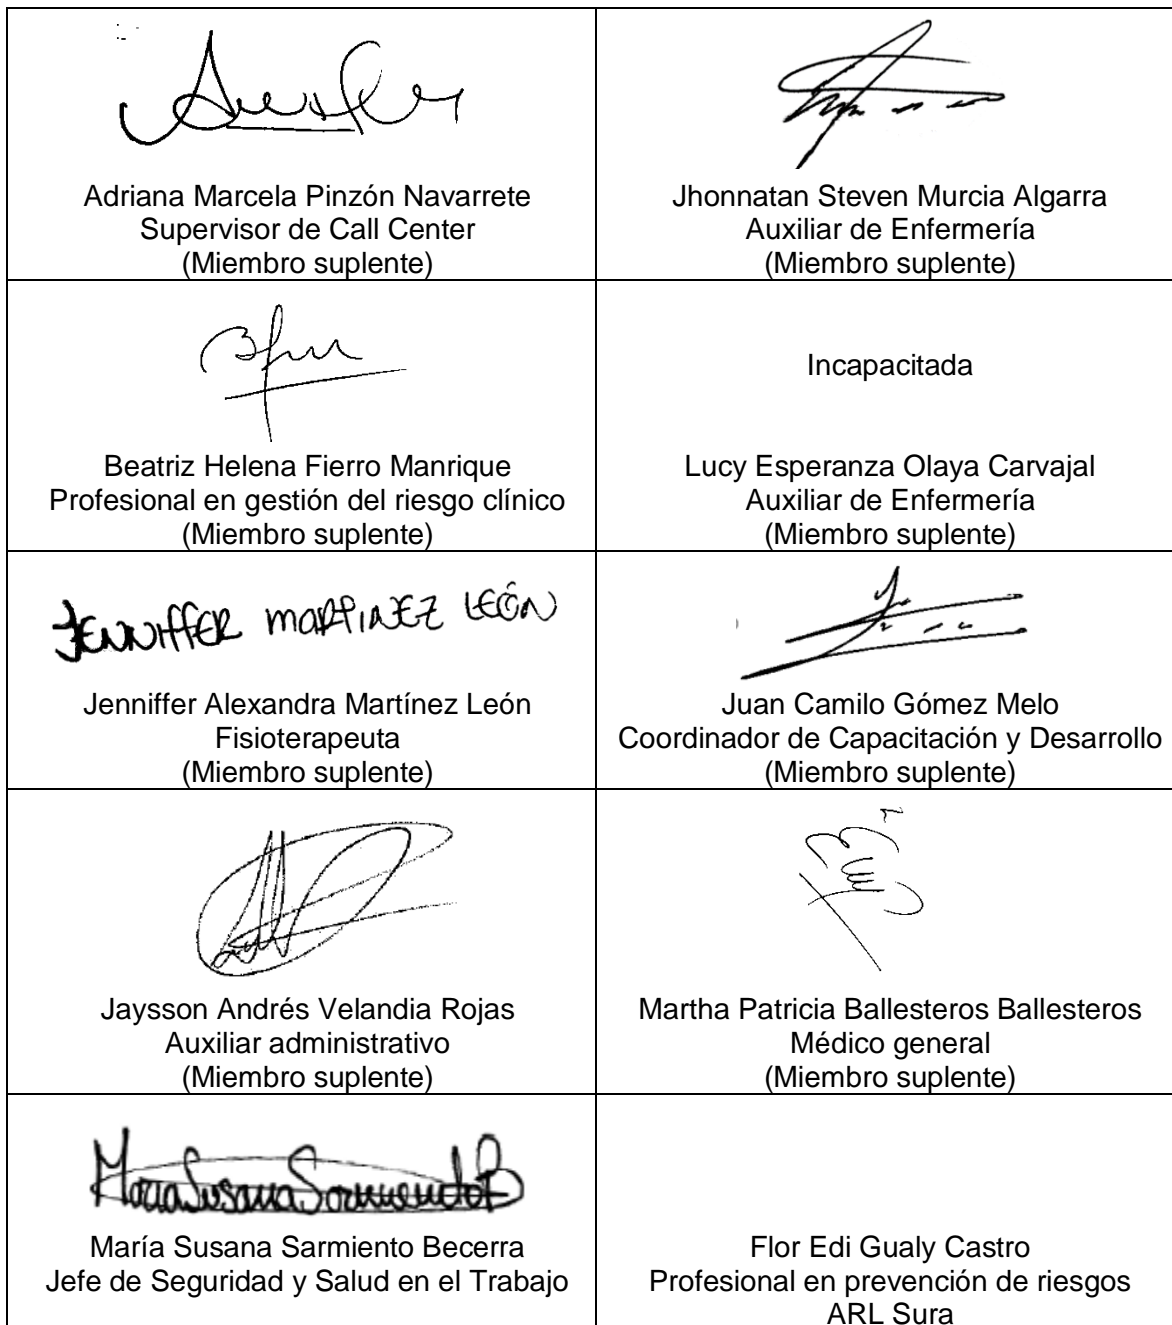 Adriana Marcela Pinzón Navarrete
Supervisor de Call Center
(Miembro suplente)
Jhonnatan Steven Murcia Algarra
Auxiliar de Enfermería
(Miembro suplente)
Beatriz Helena Fierro Manrique
Profesional en gestión del riesgo clínico
(Miembro suplente)
Incapacitada
Lucy Esperanza Olaya Carvajal
Auxiliar de Enfermería
(Miembro suplente)
JENNIFFER MARTINEZ LEÓN
Jenniffer Alexandra Martínez León
Fisioterapeuta
(Miembro suplente)
Juan Camilo Gómez Melo
Coordinador de Capacitación y Desarrollo
(Miembro suplente)
Jaysson Andrés Velandia Rojas
Auxiliar administrativo
(Miembro suplente)
Martha Patricia Ballesteros Ballesteros
Médico general
(Miembro suplente)
Maria Susana Sarmiento B
María Susana Sarmiento Becerra
Jefe de Seguridad y Salud en el Trabajo
Flor Edi Gualy Castro
Profesional en prevención de riesgos
ARL Sura